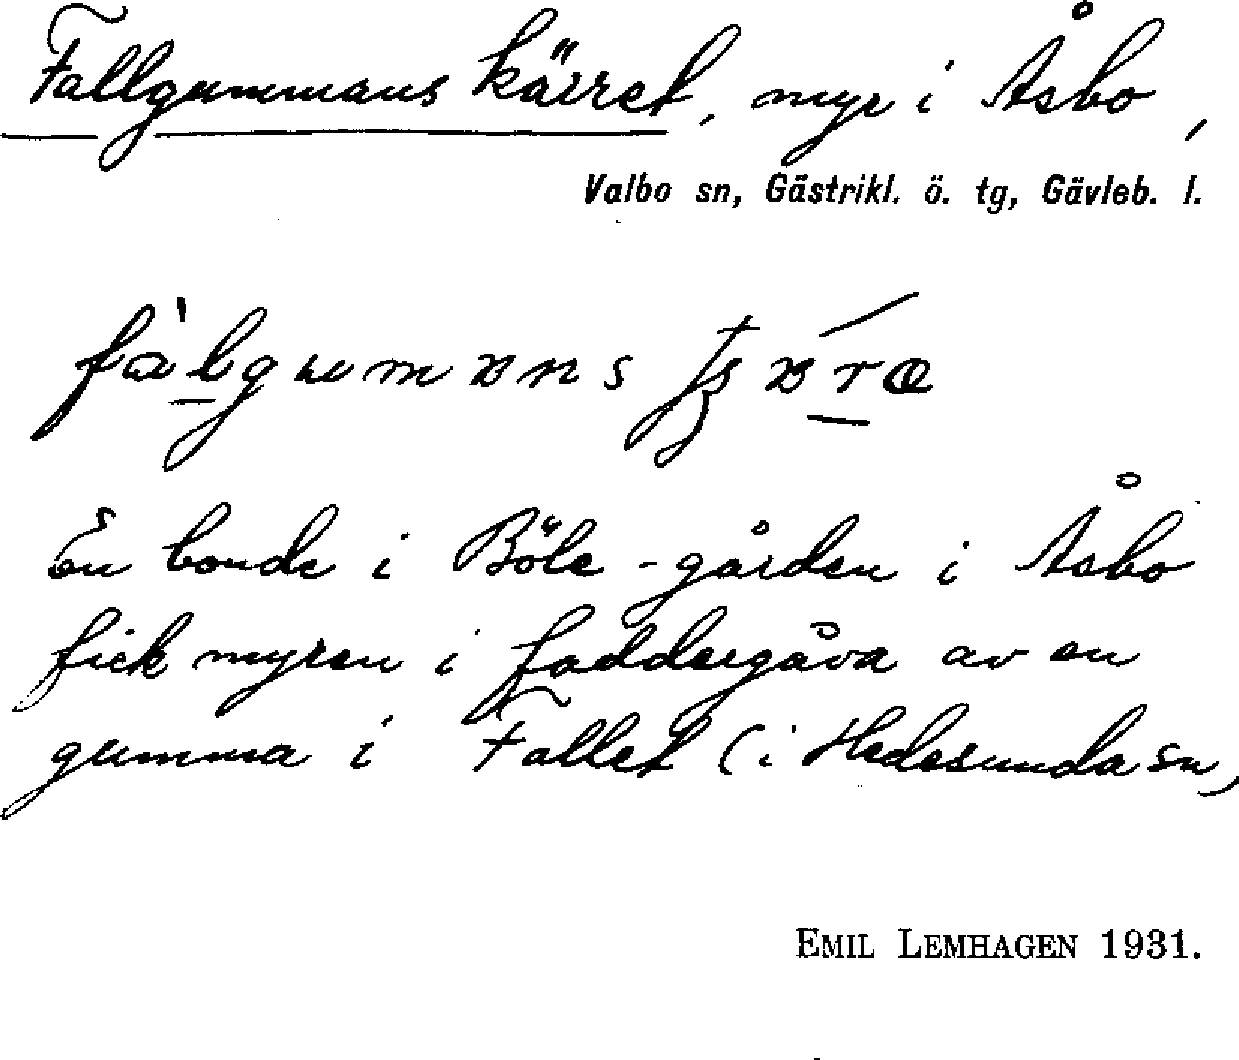 Fallgummans kärret, myr i Åsbo,
Valbo sn, Gästrikl. ö. tg, Gävleb. l.
En bonde i Böle-gården i Åsbo
fick myren i faddergåva av en
gumma i Fallet (i Hedesunda sn,
EMIL LEMHAGEN 1931.